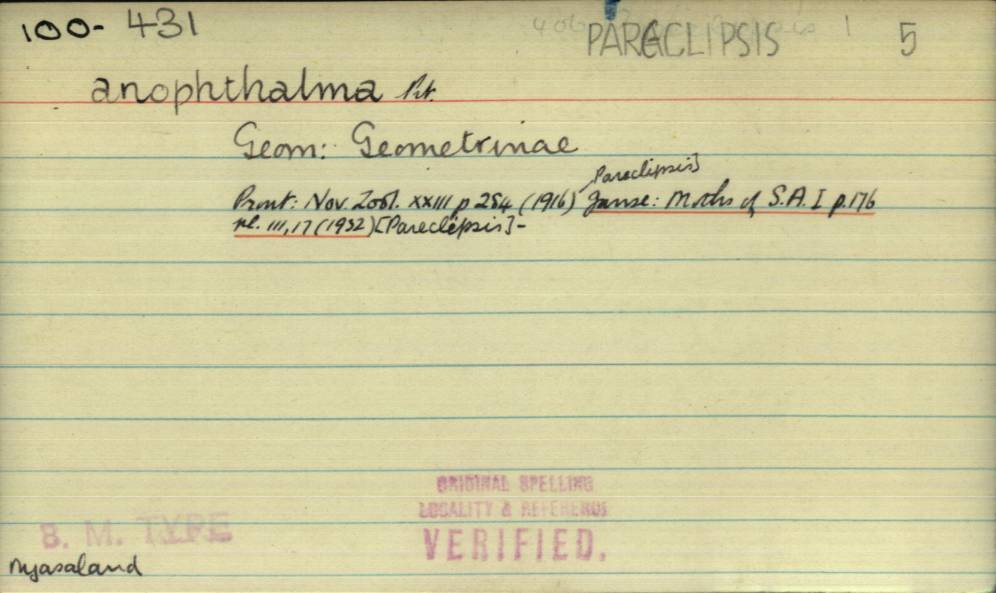 100-431 PARACLIPSIS 5
anophthalma Prt.
Geom: Geometrinae
Paraclipsis]
Prout: Nov. Zool. XXIII, p 254 (1916) Janse: Moths of S.A. I p.176
pl. III, 17 (1932) [Pareclipsis] -
ORIGINAL SPELLING
LOCALITY & REFERENCE
VERIFIED.
B. M. TYPE
Nyasaland